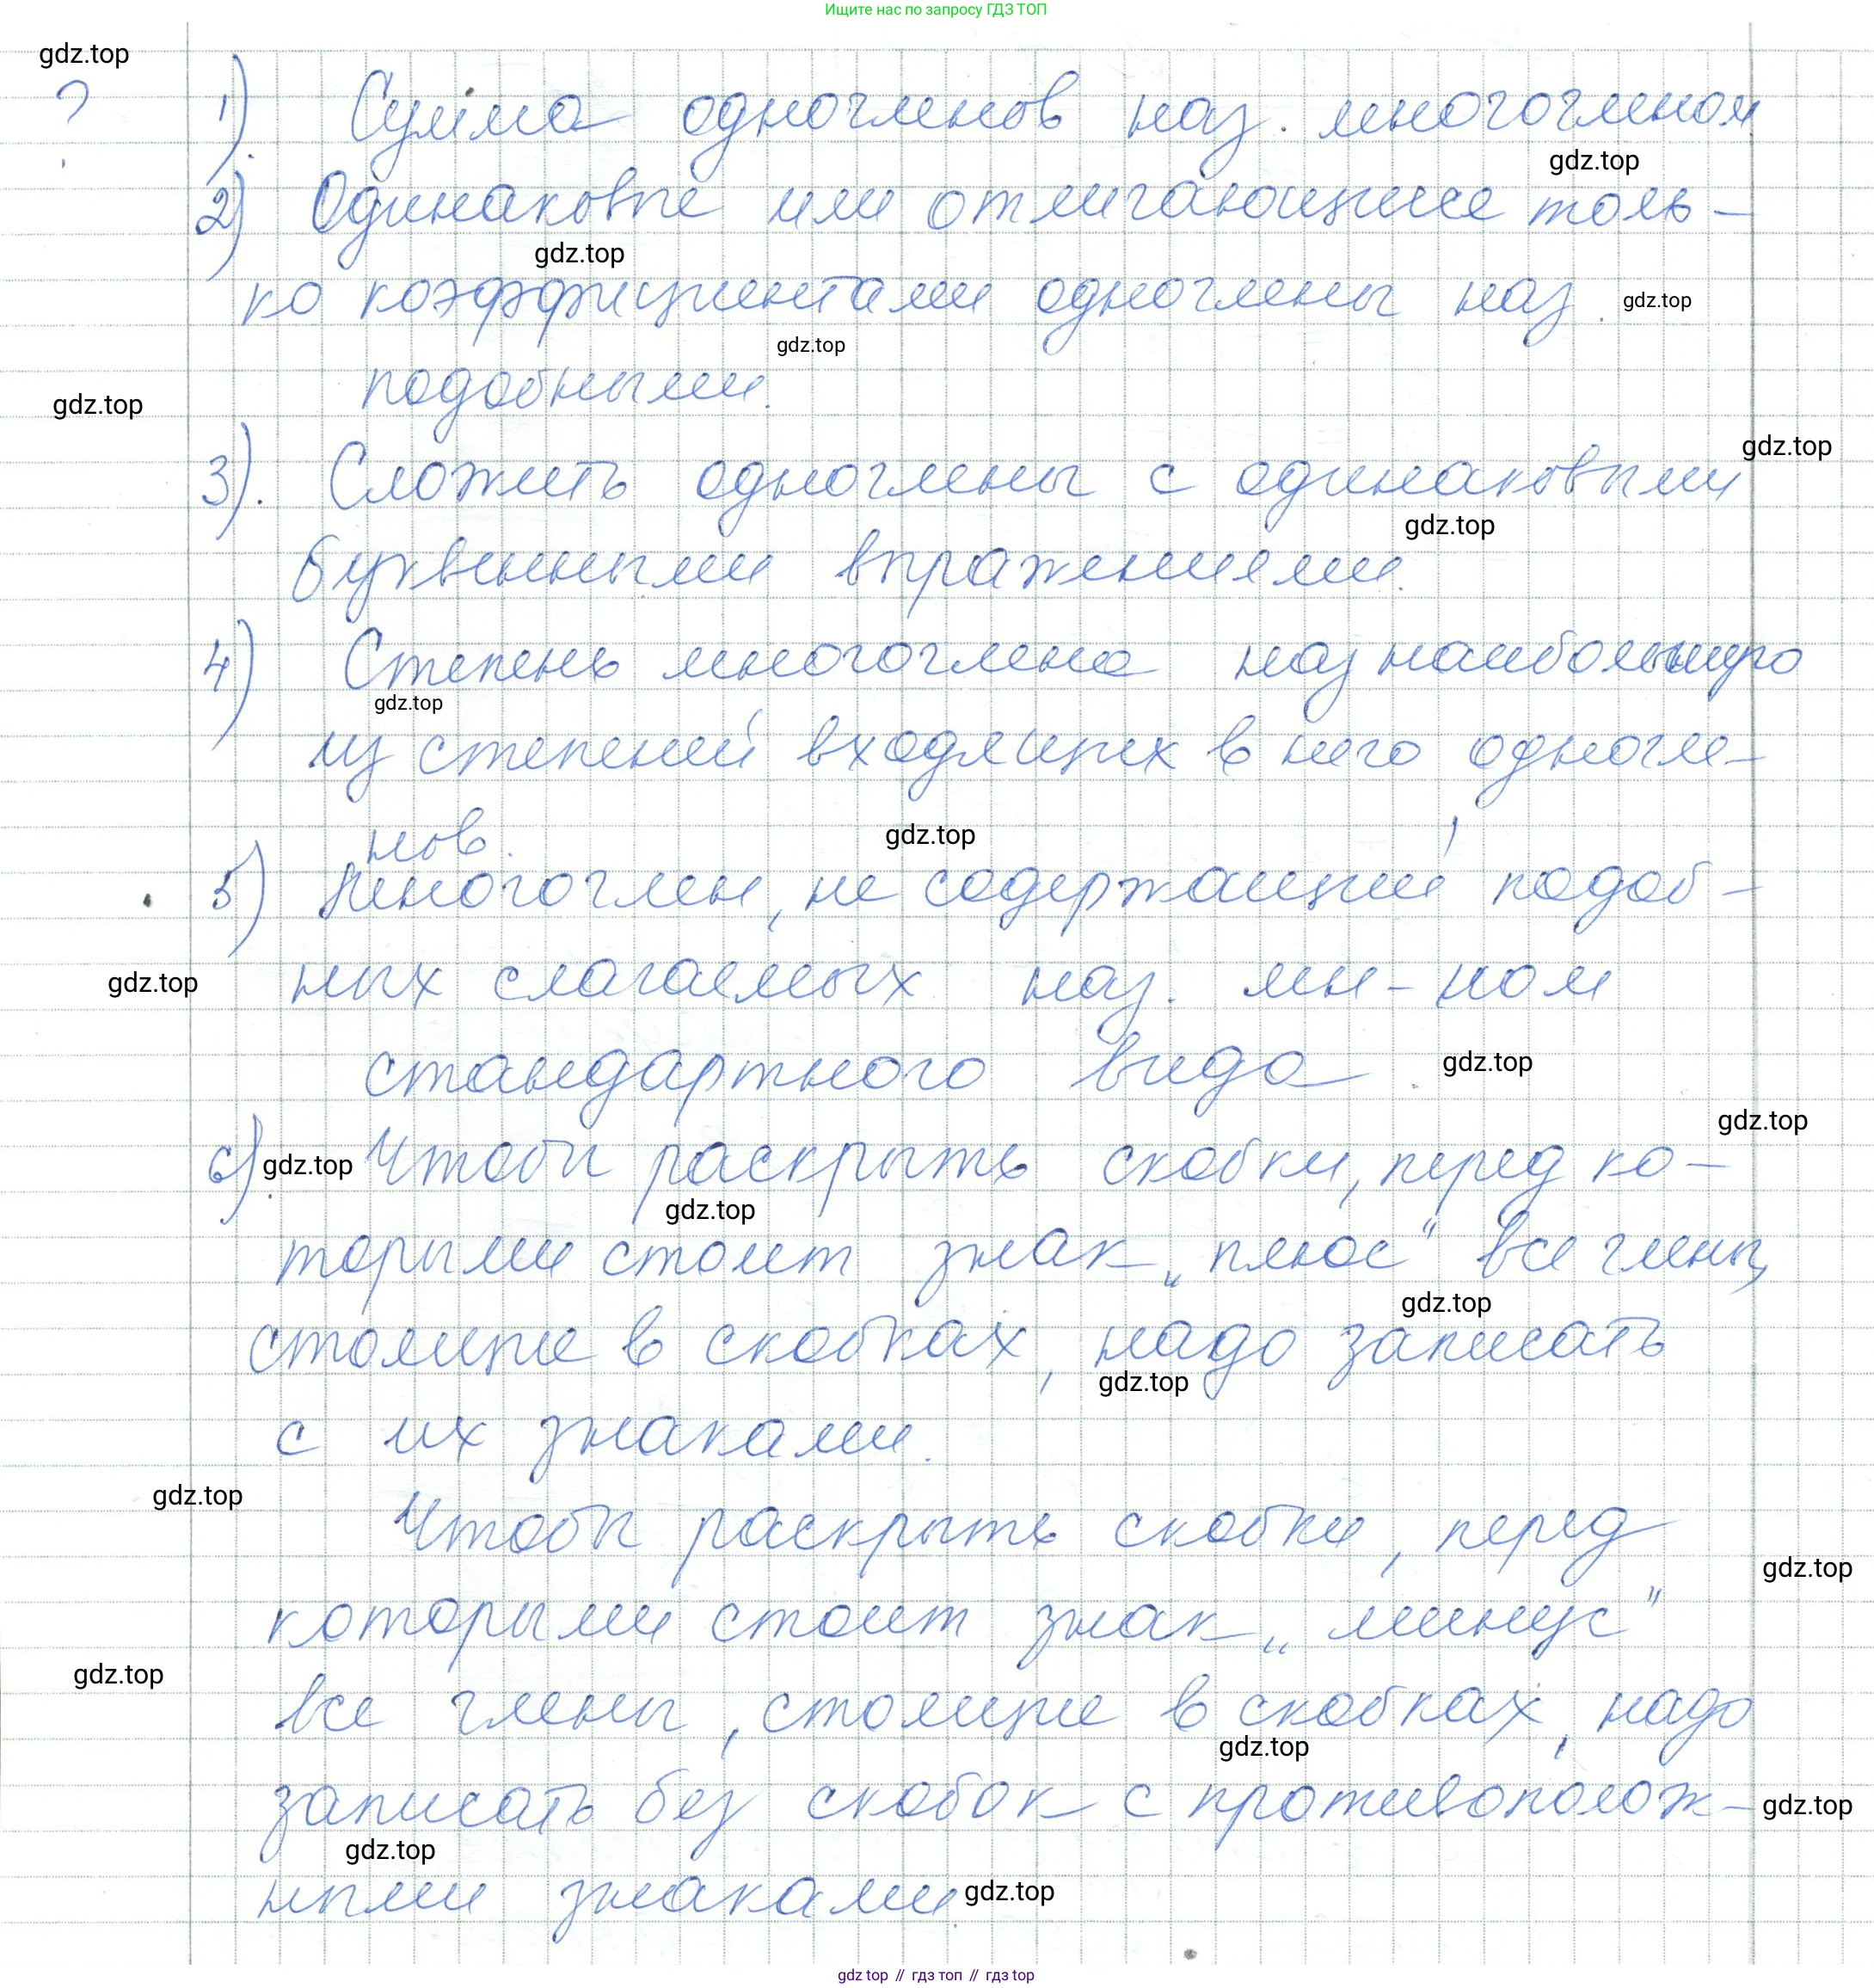 Ищите нас по запросу ГДЗ ТОП
gdz.top
? 1). Сумма одночленов наз. многочленом
gdz.top
2) Одинаковые или отличающиеся толь-
gdz.top
ко коэффициентами одночлены наз.
gdz.top
gdz.top
подобными.
gdz.top
gdz.top
3). Сложить одночлены с одинаковыми
gdz.top
буквенными выражениями.
4) Степень многочлена наз наибольшую
gdz.top
из степеней входящих в него одночле-
нов.
gdz.top
5) Многочлен, не содержащий подоб-
gdz.top
ных слагаемых наз. мн-ном
стандартного вида.
gdz.top
gdz.top
6). Чтобы раскрыть скобки, перед ко-
gdz.top
gdz.top
торыми стоит знак „плюс" все члены,
gdz.top
стоящие в скобках, надо записать
gdz.top
с их знаками.
gdz.top
Чтобы раскрыть скобки, перед
gdz.top
которыми стоит знак „минус"
gdz.top
все члены, стоящие в скобках, надо
gdz.top
записать без скобок с противополож-
gdz.top
gdz.top
ными знаками.
gdz.top
gdz top // гдз топ // гдз top